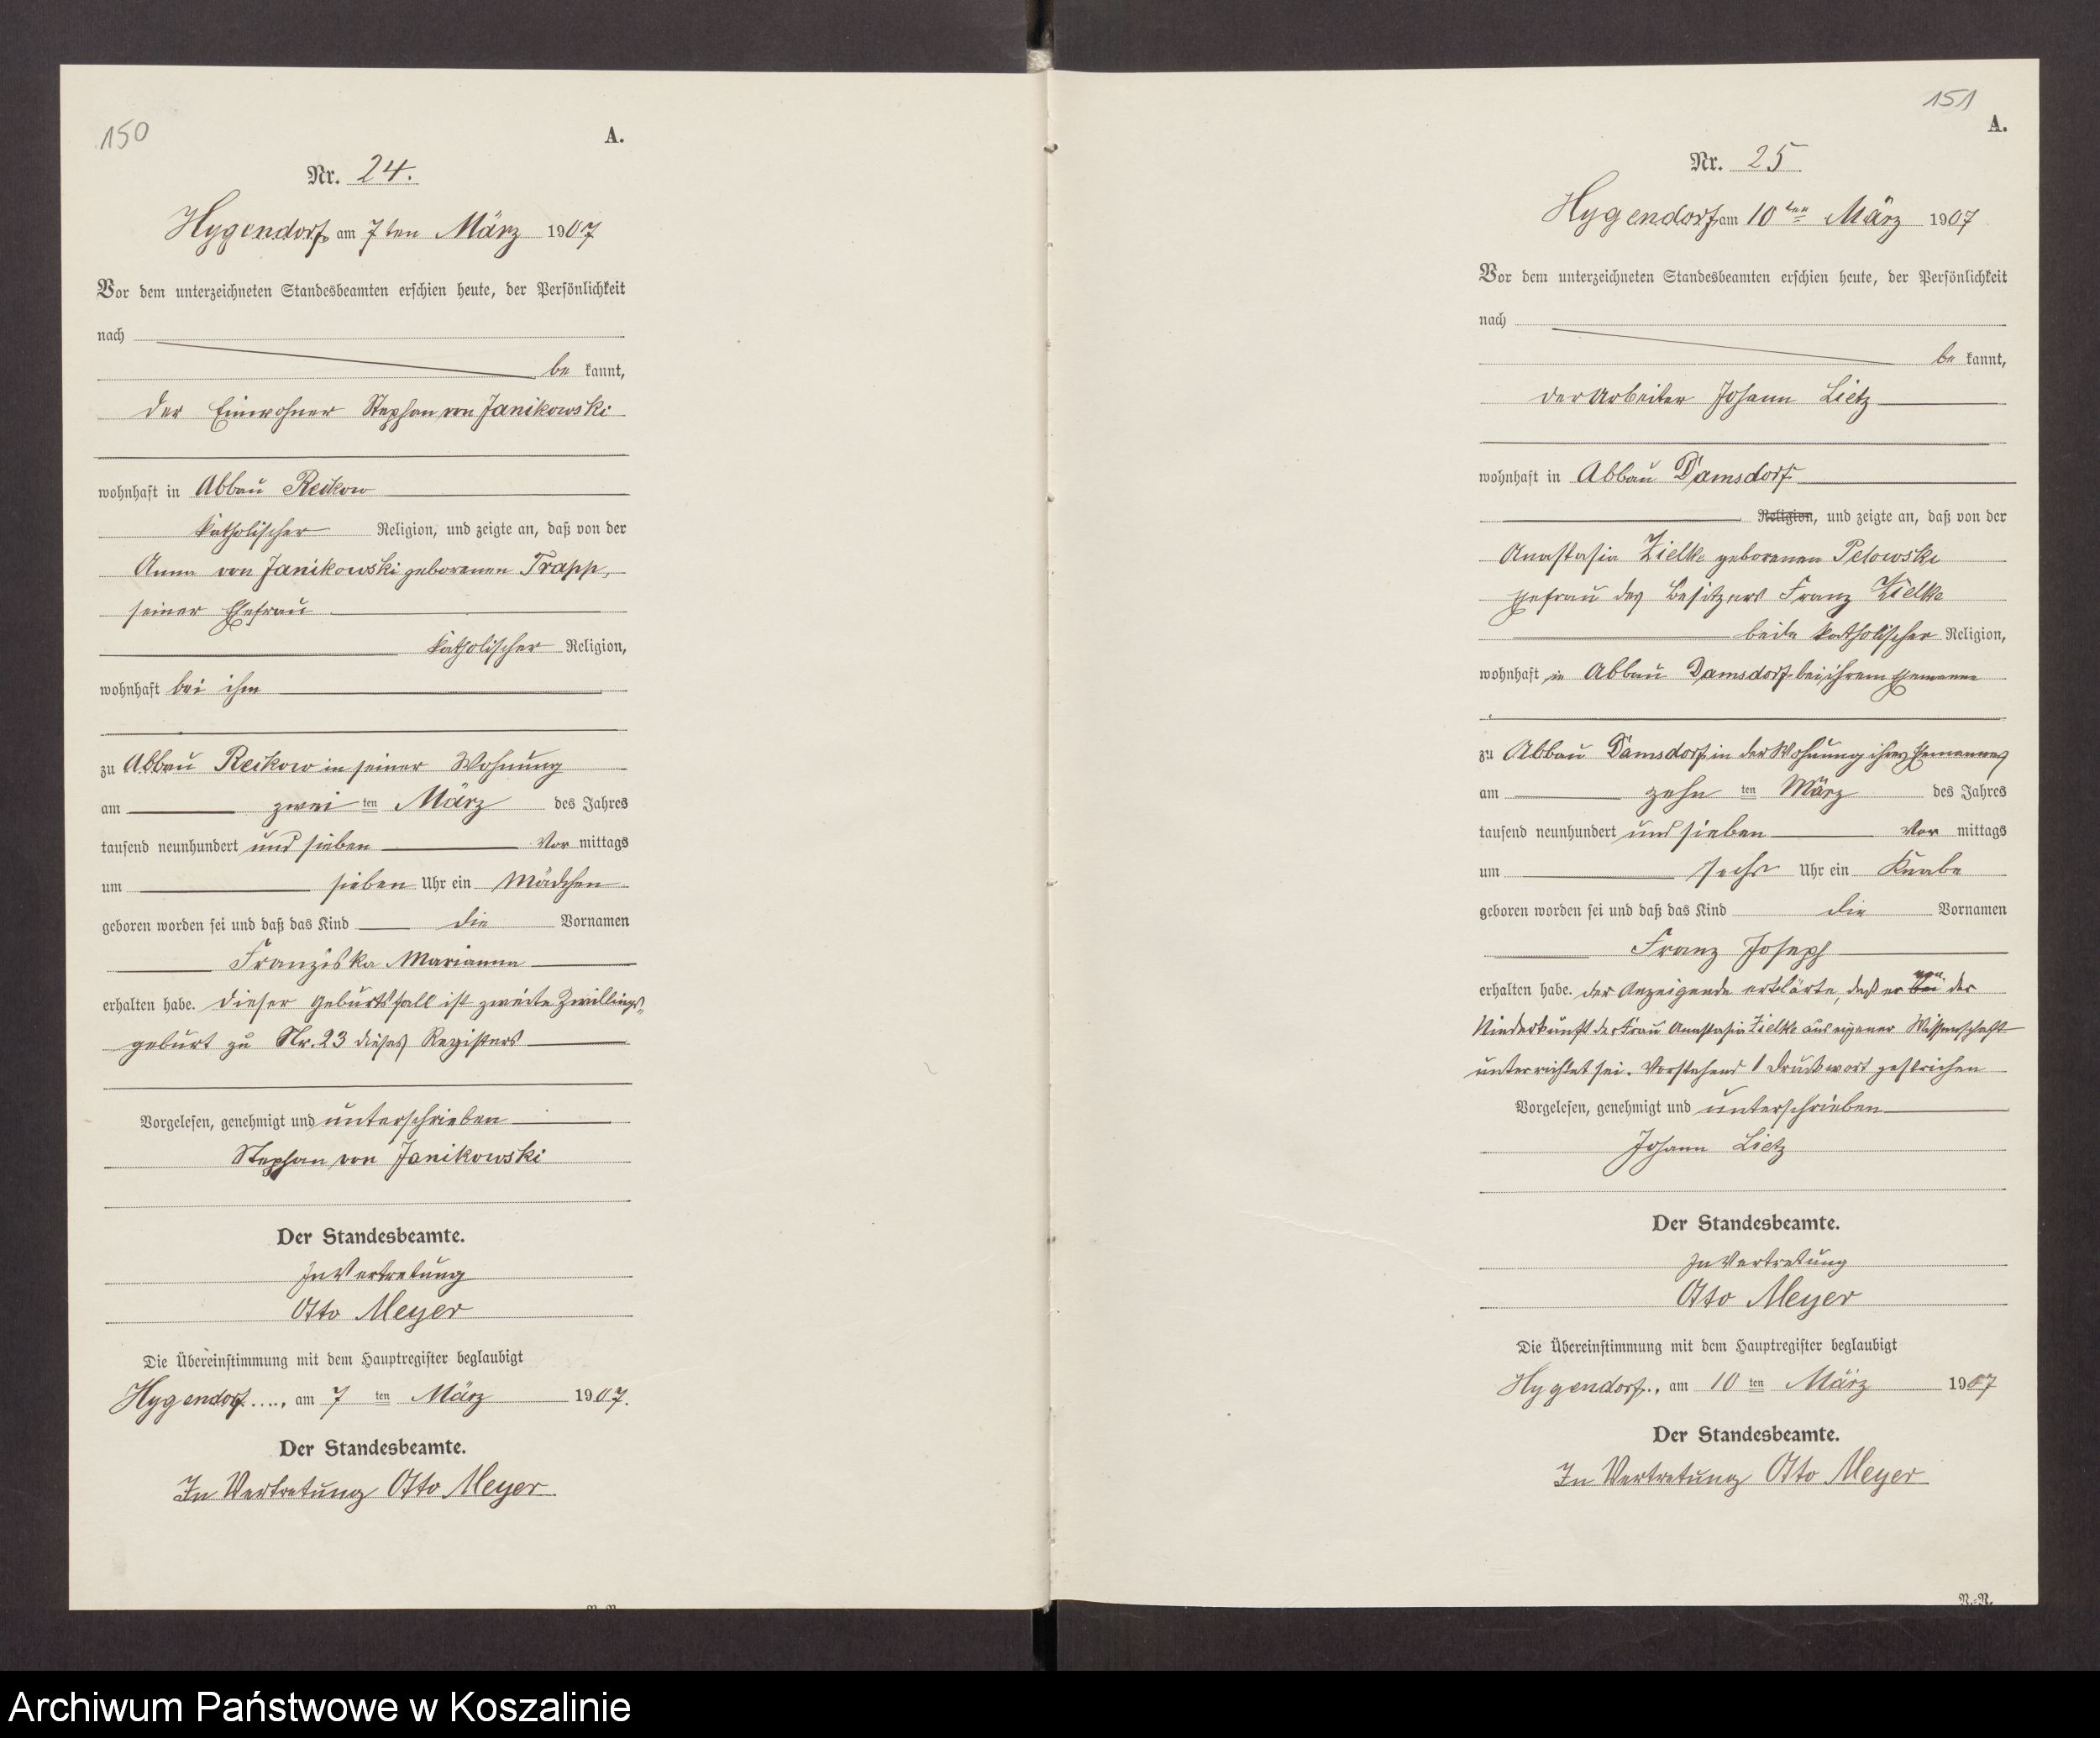 150
A.
Nr. 24.
Hygendorf am 7ten März 1907
Vor dem unterzeichneten Standesbeamten erschien heute, der Persönlichkeit
nach
be kannt,
der Einwohner Stephan von Janikowski
wohnhaft in Abbau Reckow
katholischer Religion, und zeigte an, daß von der
Anna von Janikowski geborenen Trapp,
seiner Ehefrau
katholischer Religion,
wohnhaft bei ihm
zu Abbau Reckow in seiner Wohnung
am zwei ten März des Jahres
tausend neunhundert und sieben Vor mittags
um sieben Uhr ein Mädchen
geboren worden sei und daß das Kind die Vornamen
Franziska Marianna
erhalten habe. Dieser Geburtsfall ist zweite Zwillings-
geburt zu Nr. 23 dieses Registers
Vorgelesen, genehmigt und unterschrieben
Stephan von Janikowski
Der Standesbeamte.
In Vertretung
Otto Meyer
Die Übereinstimmung mit dem Hauptregister beglaubigt
Hygendorf, am 7 ten März 1907.
Der Standesbeamte.
In Vertretung Otto Meyer
151
A.
Nr. 25
Hygendorf am 10ten März 1907
Vor dem unterzeichneten Standesbeamten erschien heute, der Persönlichkeit
nach
be kannt,
der Arbeiter Johann Lietz
wohnhaft in Abbau Damsdorf
Religion, und zeigte an, daß von der
Anastasia Zielke geborenen Pelowski
Ehefrau des Besitzers Franz Zielke
beide katholischer Religion,
wohnhaft in Abbau Damsdorf bei ihrem Ehemanne
zu Abbau Damsdorf in der Wohnung ihres Ehemannes
am zehn ten März des Jahres
tausend neunhundert und sieben Vor mittags
um sechs Uhr ein Knabe
geboren worden sei und daß das Kind die Vornamen
Franz Joseph
erhalten habe. Der Anzeigende erklärte, daß er von der
Niederkunft der Frau Anastasia Zielke aus eigener Wissenschaft
unterrichtet sei. Vorstehend 1 Druckwort gestrichen
Vorgelesen, genehmigt und unterschrieben
Johann Lietz
Der Standesbeamte.
In Vertretung
Otto Meyer
Die Übereinstimmung mit dem Hauptregister beglaubigt
Hygendorf, am 10 ten März 1907
Der Standesbeamte.
In Vertretung Otto Meyer
Archiwum Państwowe w Koszalinie